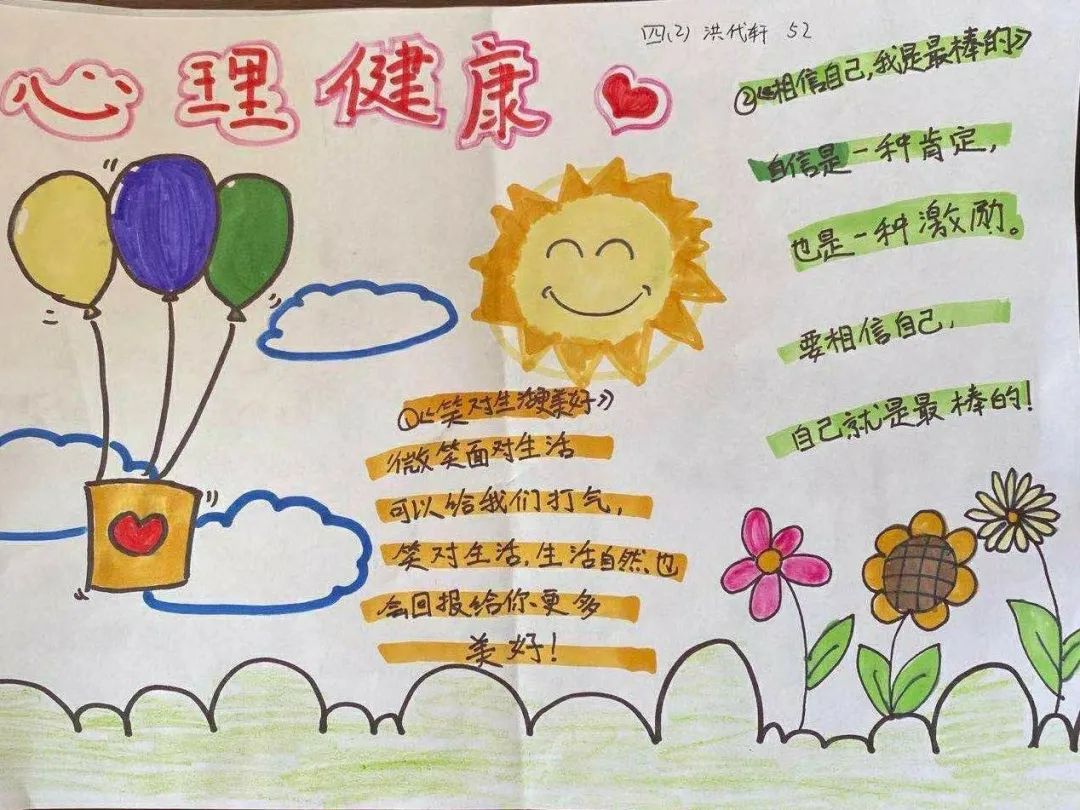 四(2) 洪代轩 52
心理健康
①《笑对生活更美好》
微笑面对生活
可以给我们打气,
笑对生活,生活自然、也
会回报给你、更多
美好!
②《相信自己,我是最棒的》
自信是一种肯定,
也是一种激励。
要相信自己,
自己就是最棒的!